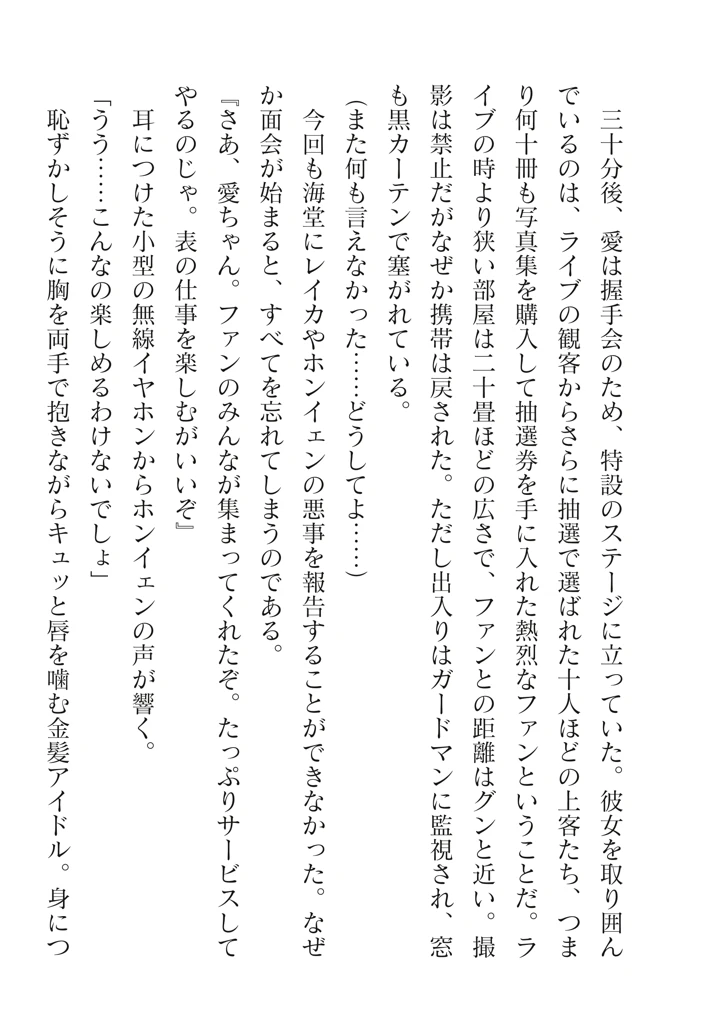 三十分後、愛は握手会のため、特設のステージに立っていた。彼女を取り囲ん
でいるのは、ライブの観客からさらに抽選で選ばれた十人ほどの上客たち、つま
り何十冊も写真集を購入して抽選券を手に入れた熱烈なファンということだ。ラ
イブの時より狭い部屋は二十畳ほどの広さで、ファンとの距離はグンと近い。撮
影は禁止だがなぜか携帯は戻された。ただし出入りはガードマンに監視され、窓
も黒カーテンで塞がれている。
（また何も言えなかった……どうしてよ……）
　今回も海堂にレイカやホンイェンの悪事を報告することができなかった。なぜ
か面会が始まると、すべてを忘れてしまうのである。
『さあ、愛ちゃん。ファンのみんなが集まってくれたぞ。たっぷりサービスして
やるのじゃ。表の仕事を楽しむがいいぞ』
　耳につけた小型の無線イヤホンからホンイェンの声が響く。
「うう……こんなの楽しめるわけないでしょ」
　恥ずかしそうに胸を両手で抱きながらキュッと唇を噛む金髪アイドル。身につ